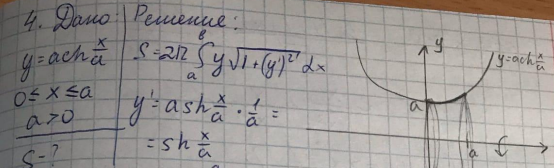 4. Дано: Решение:
y = a ch x/a
0 ≤ x ≤ a
a > 0
S - ?
S = 2π ∫ₐᵇ y √1 + (y')² dx
y' = a sh x/a · 1/a =
= sh x/a
y
y = a ch x/a
a
a